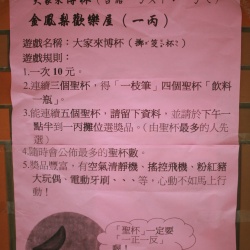 金鳳梨歡樂屋(一丙)
遊戲名稱:大家來博杯
遊戲規則:
1.一次10元。
2.連續三個聖杯,得「一枝筆」四個聖杯「飲料
一瓶」。
3.能連續五個聖杯,請留下資料,並請於下午一
點半到一丙攤位選獎品。(由聖杯最多的人先
選)
4.隨時會公佈最多的聖杯數。
5.獎品豐富,有空氣清靜機、搖控飛機、粉紅豬
大玩偶、電動牙刷、、、等,心動不如馬上行
動!
「聖杯」一定要
一正一反」
啊!